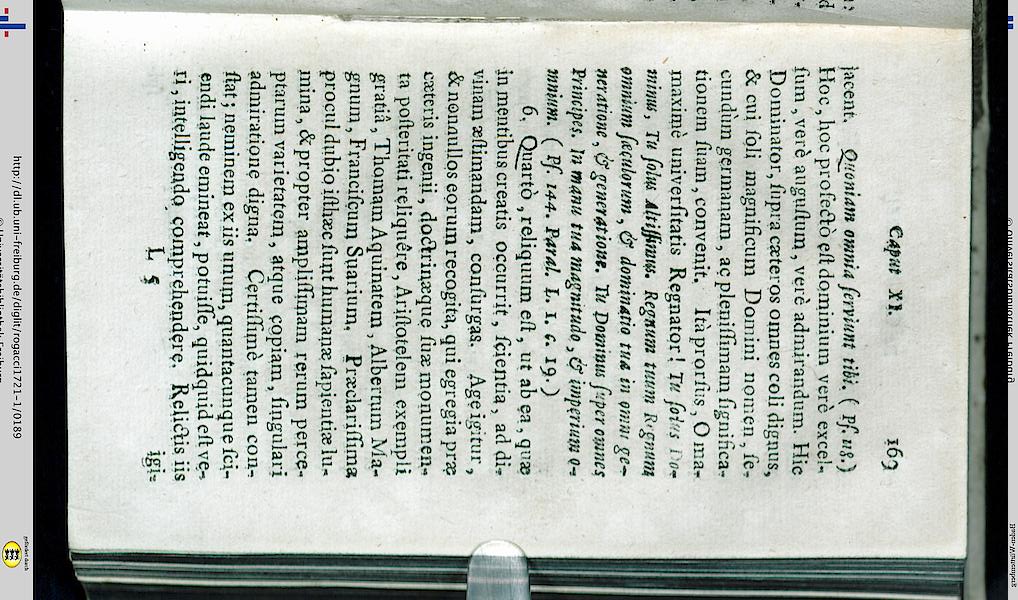 Caput XI. 169
jacent. Quoniam omnia serviunt tibi. (Ps. 118.)
Hoc, hoc profectò est dominium verè excel-
sum, verè augustum, verè admirandum. Hic
Dominator, supra cæteros omnes coli dignus,
& cui soli magnificum Domini nomen, se-
cundùm germanam, ac plenissimam significa-
tionem suam, convenit. Ità prorsus, O ma-
ximè universitatis Regnator! Tu solus Do-
minus, Tu solus Altissimus. Regnum tuum Regnum
omnium sæculorum, & dominatio tua in omni ge-
neratione, & generatione. Tu Dominus super omnes
Principes. In manu tua magnitudo, & imperium o-
mnium. (Ps. 144. Paral. L. 1. c. 19.)
6. Quartò, reliquum est, ut ab ea, quæ
in mentibus creatis occurrit, scientia, ad di-
vinam æstimandam, consurgas. Age igitur,
& nonnullos eorum recogita, qui egregia præ
cæteris ingenii, doctrinæque suæ monumen-
ta posteritati reliquêre, Aristotelem exempli
gratiâ, Thomam Aquinatem, Albertum Ma-
gnum, Franciscum Suarium. Præclarissima
procul dubio isthæc sunt humanæ sapientiæ lu-
mina, & propter amplissimam rerum perce-
ptarum varietatem, atque copiam, singulari
admiratione digna. Certissimè tamen con-
stat; neminem ex iis unum, quantacunque sci-
endi laude emineat, potuisse, quidquid est ve-
ri, intelligendo comprehendere. Relictis iis
L 5 igi-
http://dl.ub.uni-freiburg.de/diglit/rogacci1721-1/0189
© Universitätsbibliothek Freiburg
gefördert durch